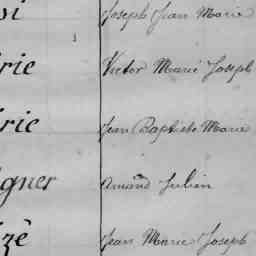 si Joseph Jean Marie
rie Victor Marie Joseph
rie Jean Baptiste Marie
gner Amand Julien
zê Jean Marie Joseph